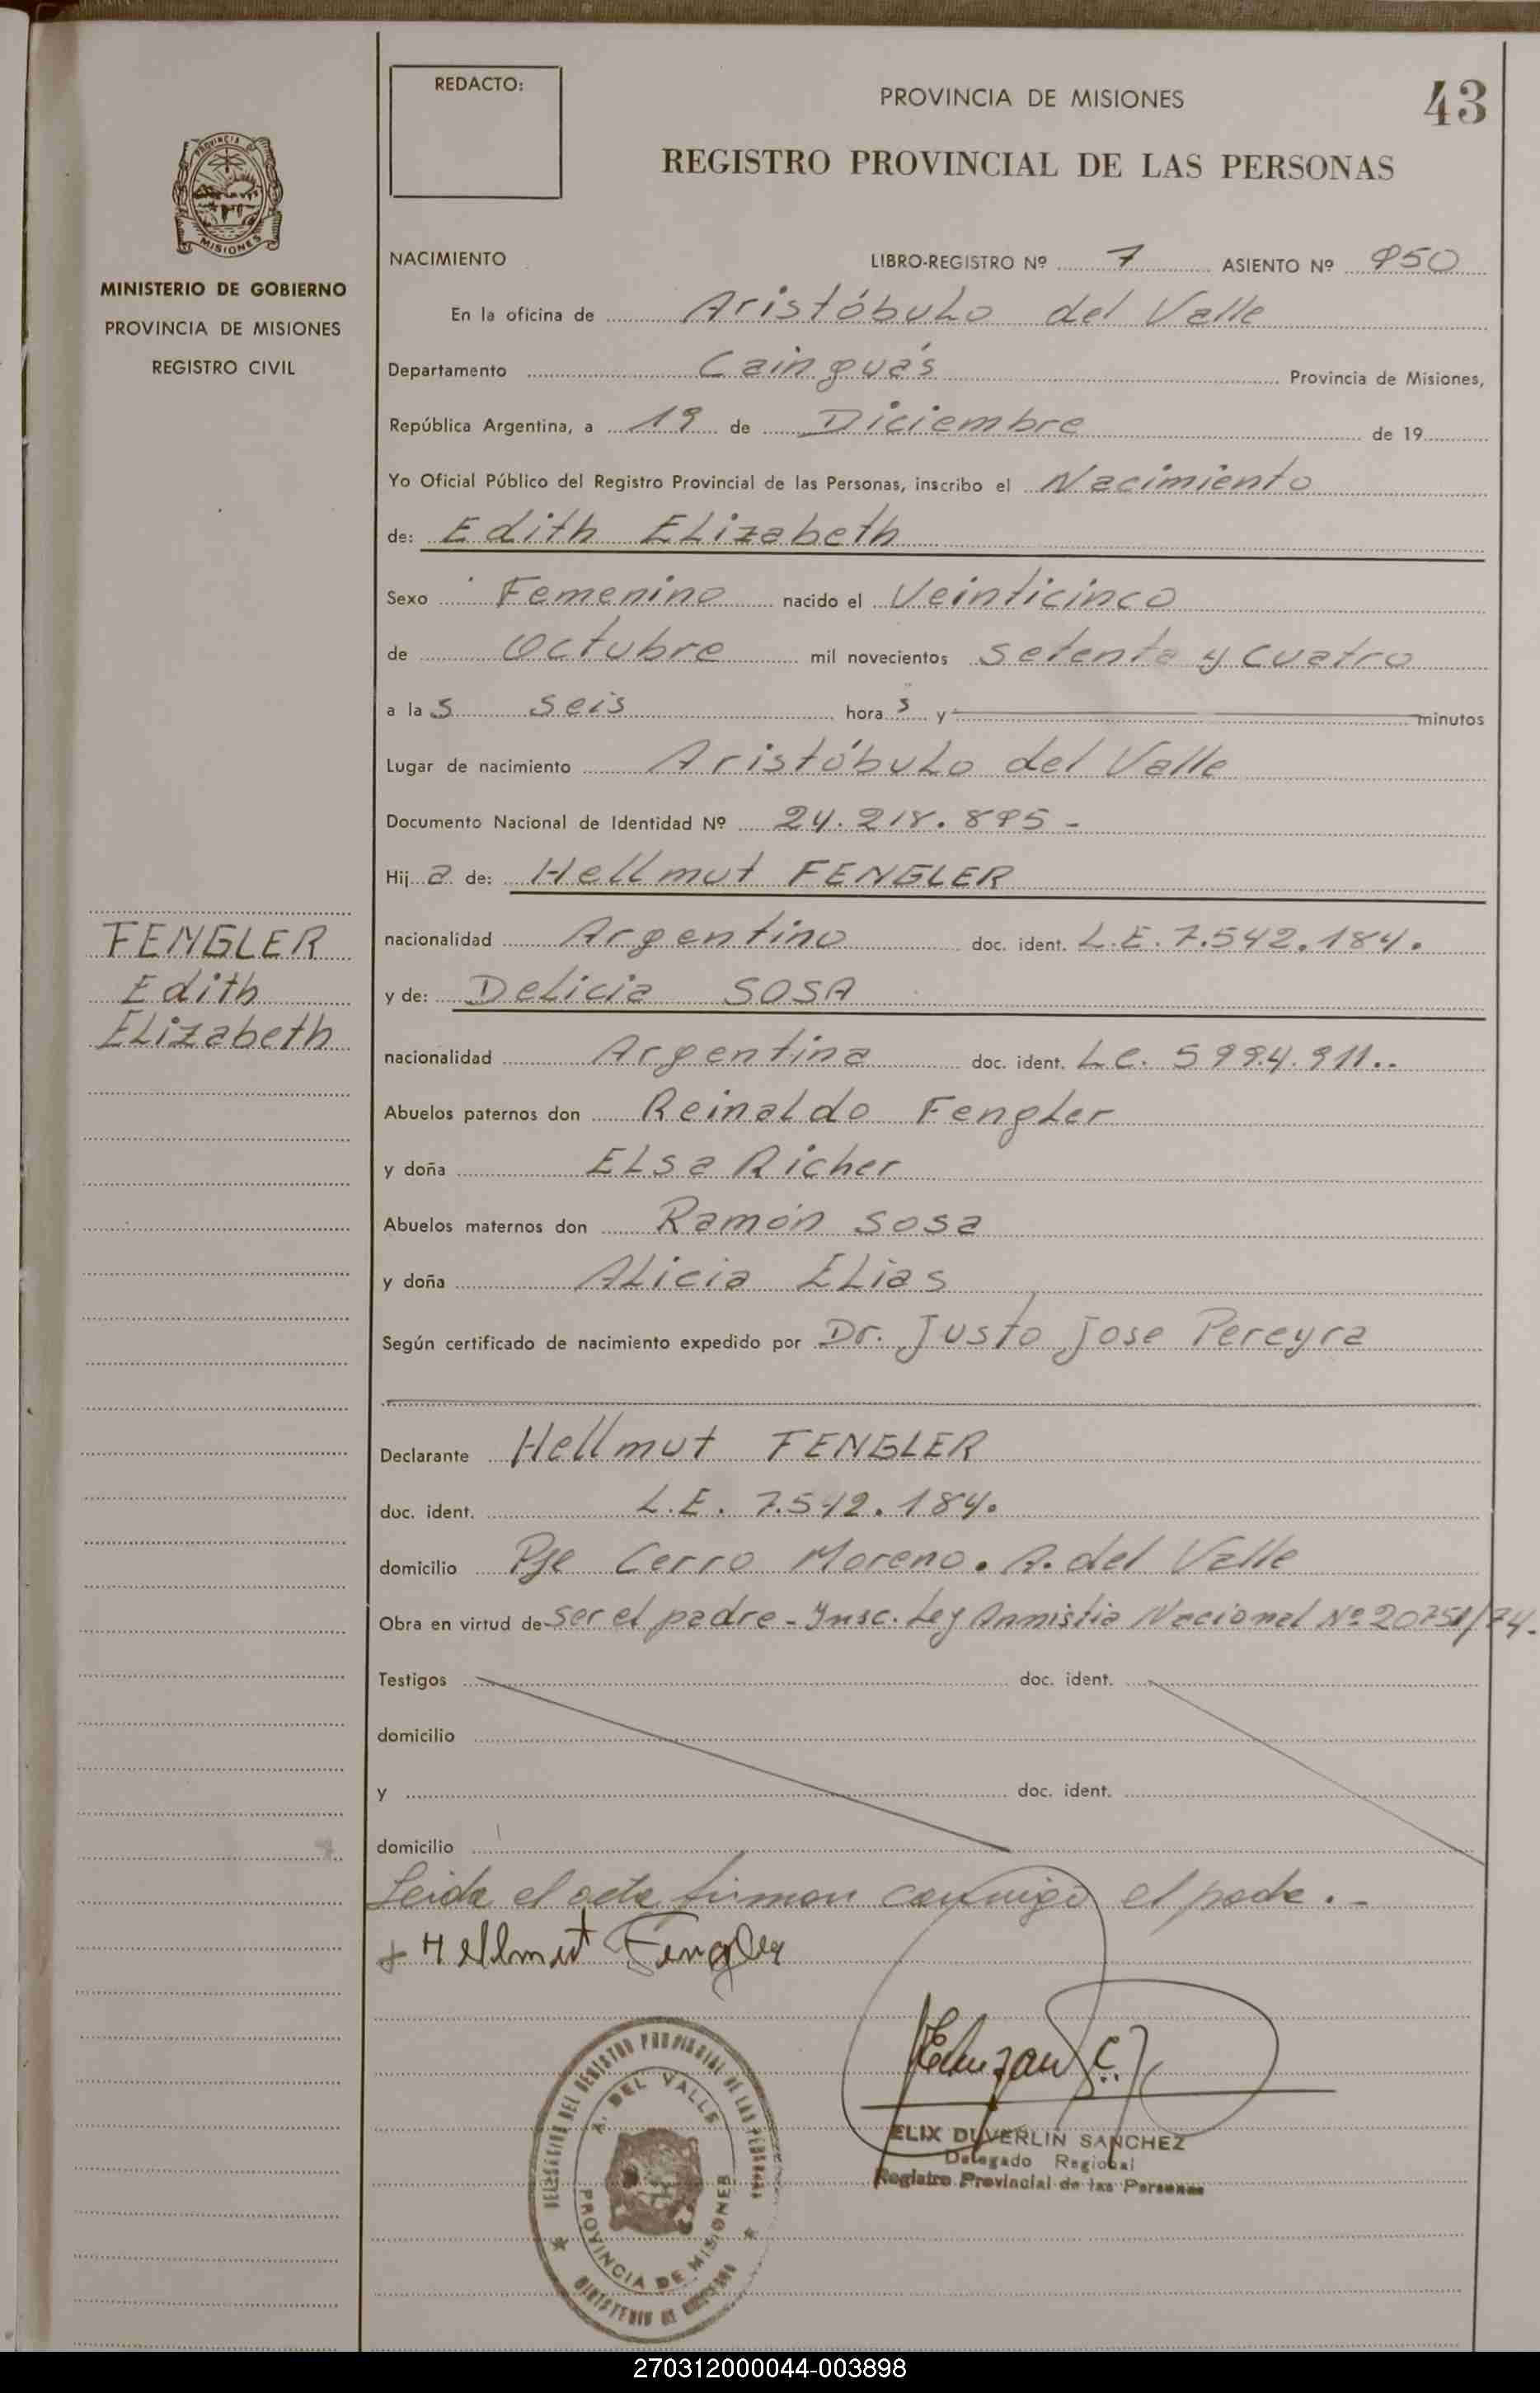 REDACTO:
PROVINCIA DE MISIONES
43
REGISTRO PROVINCIAL DE LAS PERSONAS
PROVINCIA DE
MISIONES
MINISTERIO DE GOBIERNO
PROVINCIA DE MISIONES
REGISTRO CIVIL
NACIMIENTO LIBRO-REGISTRO Nº 7 ASIENTO Nº 950
En la oficina de Aristóbulo del Valle
Departamento Cainguás Provincia de Misiones,
República Argentina, a 19 de Diciembre de 19
Yo Oficial Público del Registro Provincial de las Personas, inscribo el Nacimiento
de: Edith Elizabeth
Sexo Femenino nacido el Veinticinco
de Octubre mil novecientos setenta y cuatro
a las seis horas y minutos
Lugar de nacimiento Aristóbulo del Valle
Documento Nacional de Identidad Nº 24.218.895-
Hija de: Hellmut FENGLER
nacionalidad Argentino doc. ident. L.E. 7.542.184.
y de: Delicia SOSA
nacionalidad Argentina doc. ident. L.C. 5994.911..
FENGLER
Edith
Elizabeth
Abuelos paternos don Reinaldo Fengler
y doña Elsa Richer
Abuelos maternos don Ramón Sosa
y doña Alicia Elias
Según certificado de nacimiento expedido por Dr. Justo Jose Pereyra
Declarante Hellmut FENGLER
doc. ident. L.E. 7.542.184.
domicilio Pje Cerro Moreno. A. del Valle
Obra en virtud de ser el padre - Insc. Ley Amnistia Nacional Nº 20751/74.
Testigos doc. ident.
domicilio
y doc. ident.
domicilio
Leida el acta firman conmigo el padre.-
+ Hellmut Fengler
DELEGACION DEL REGISTRO PROVINCIAL DE LAS PERSONAS
A. DEL VALLE
PROVINCIA DE MISIONES
MINISTERIO DE GOBIERNO
ELIX DUVERLIN SANCHEZ
Delegado Regional
Registro Provincial de las Personas
270312000044-003898